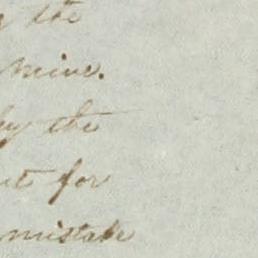 the
mine.
by the
for
mistake